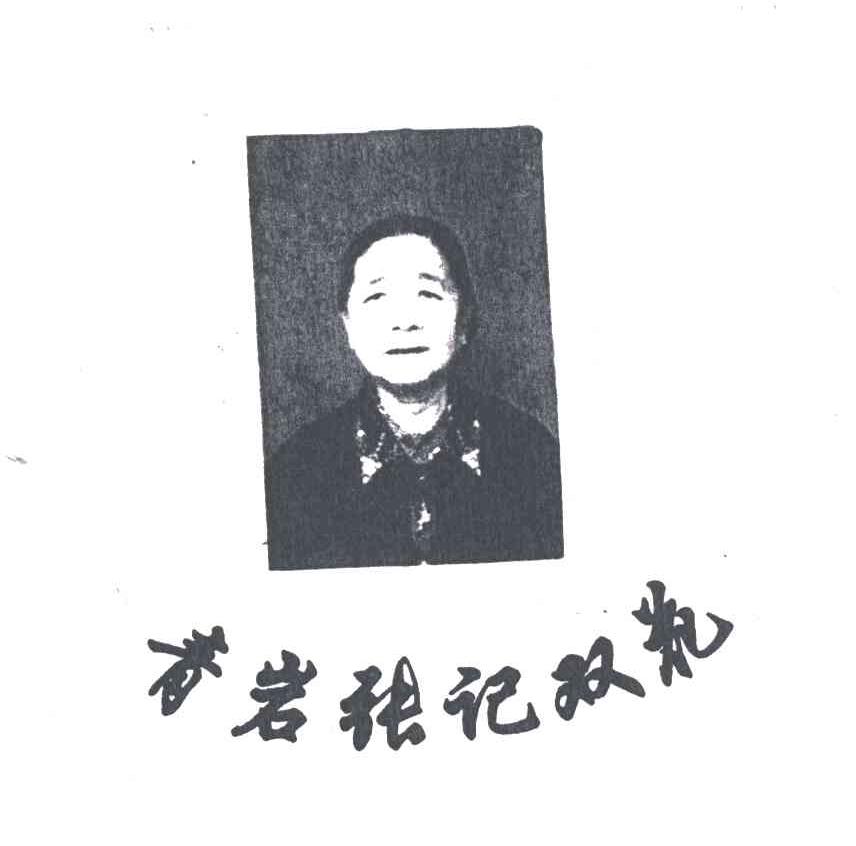 岩张记双凯